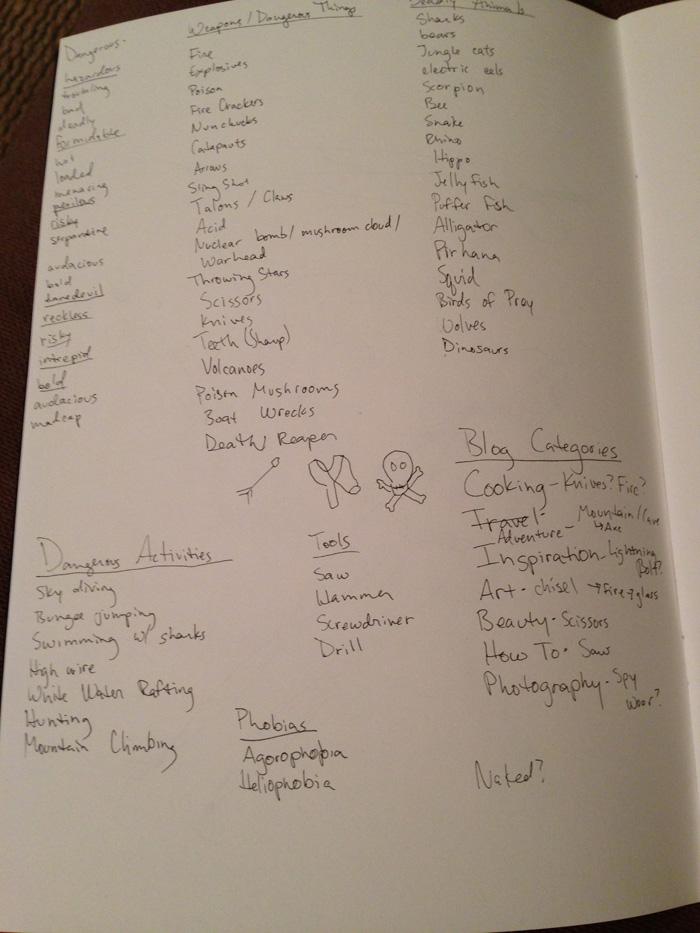 Dangerous-
hazardous
troubling
bad
deadly
formidable
hot
loaded
menacing
perilous
risky
serpentine
audacious
bold
daredevil
reckless
risky
intrepid
bold
audacious
madcap
Weapons / Dangerous Things
Fire
Explosives
Poison
Fire Crackers
Nunchucks
Catapauts
Arrows
Sling Shot
Talons / Claws
Acid
Nuclear bomb / mushroom cloud /
Warhead
Throwing Stars
Scissors
Knives
Teeth (Sharp)
Volcanoes
Poison Mushrooms
Boat Wrecks
Death/ Reaper
Deadly Animals
Sharks
bears
Jungle cats
electric eels
Scorpion
Bee
Snake
Rhino
Hippo
Jellyfish
Puffer Fish
Alligator
Pirhana
Squid
Birds of Pray
Wolves
Dinosaurs
Dangerous Activities
Sky diving
Bungee jumping
Swimming w/ sharks
High wire
White Water Rafting
Hunting
Mountain Climbing
Tools
Saw
Hammer
Screwdriver
Drill
Phobias
Agorophobia
Heliophobia
Blog Categories
Cooking - Knives? Fire?
Travel -
Adventure - Mountain /
↳ Axe
Inspiration - Lightning
Bolt?
Art - chisel → Fire → glass
Beauty - Scissors
How To - Saw
Photography - Spy
Naked?